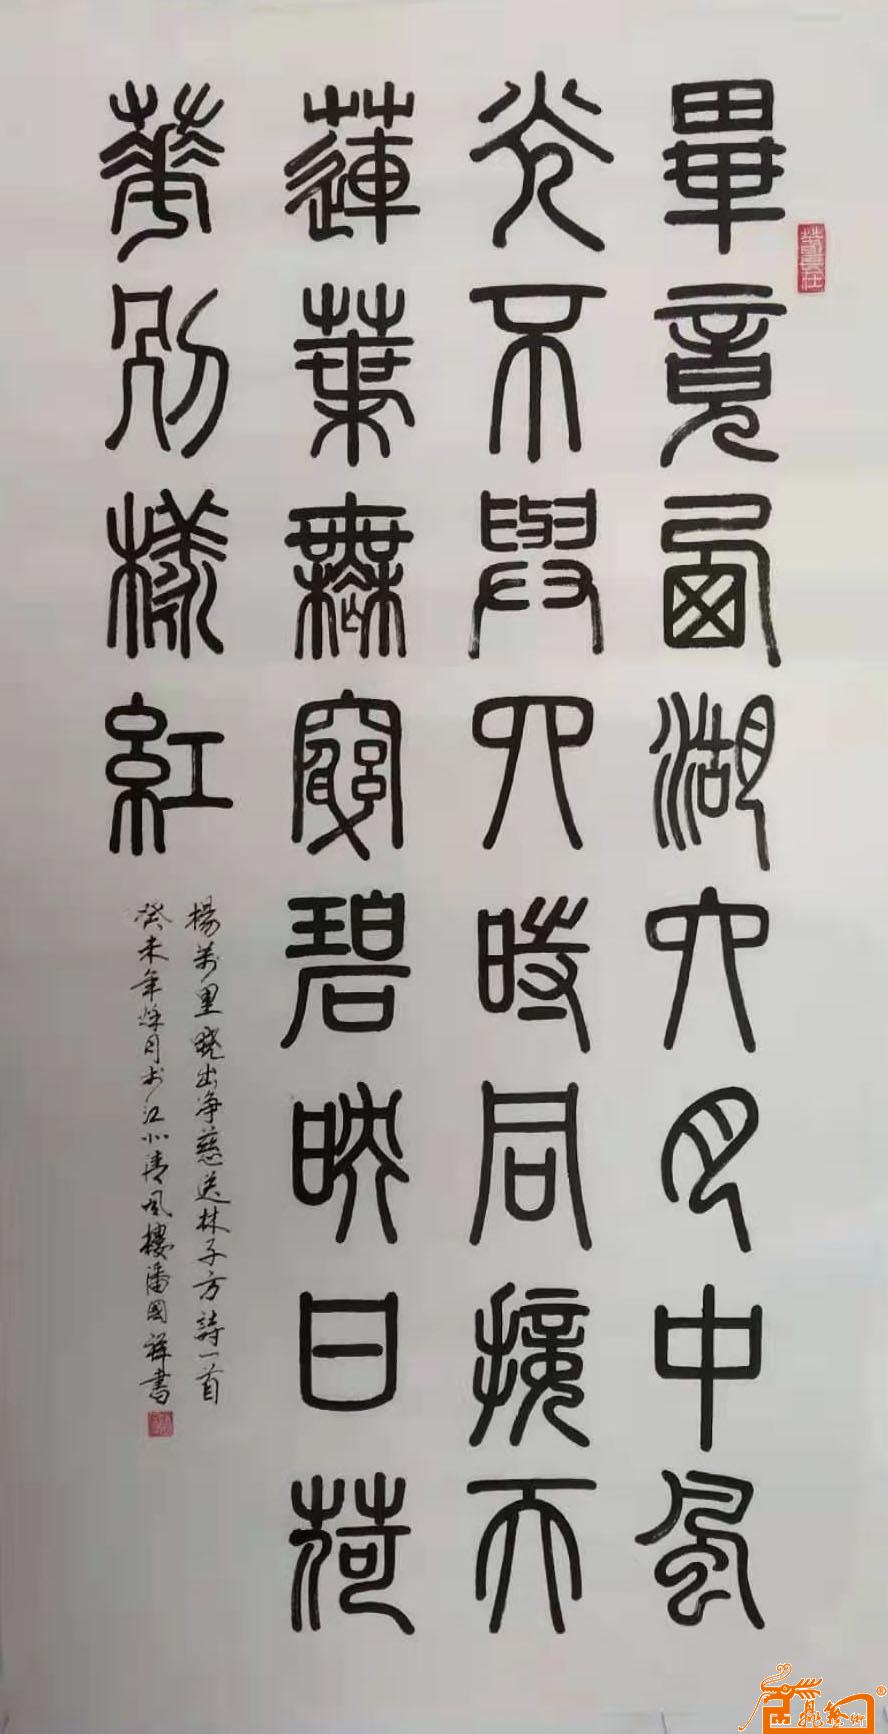 畢竟西湖六月中風
光不與四時同接天
蓮葉無窮碧映日荷
華別樣紅
楊萬里曉出淨慈送林子方詩一首
癸未年 月 江北清風樓潘國祥書